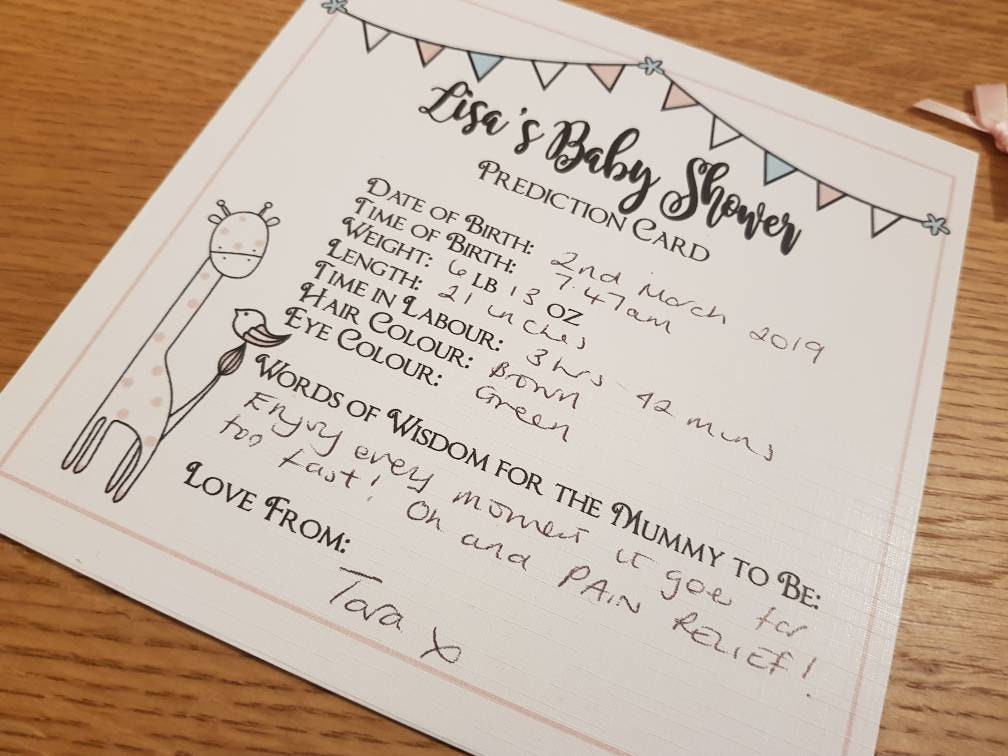 Lisa's Baby Shower
Prediction Card
Date of Birth: 2nd March 2019
Time of Birth: 7.47am
Weight: 6 lb 13 oz
Length: 21 inches
Time in Labour: 3hrs 42 mins
Hair Colour: Brown
Eye Colour: Green
Words of Wisdom for the Mummy to Be:
Enjoy every moment it goes far
too fast! Oh and PAIN RELIEF!
Love From:
Tara X